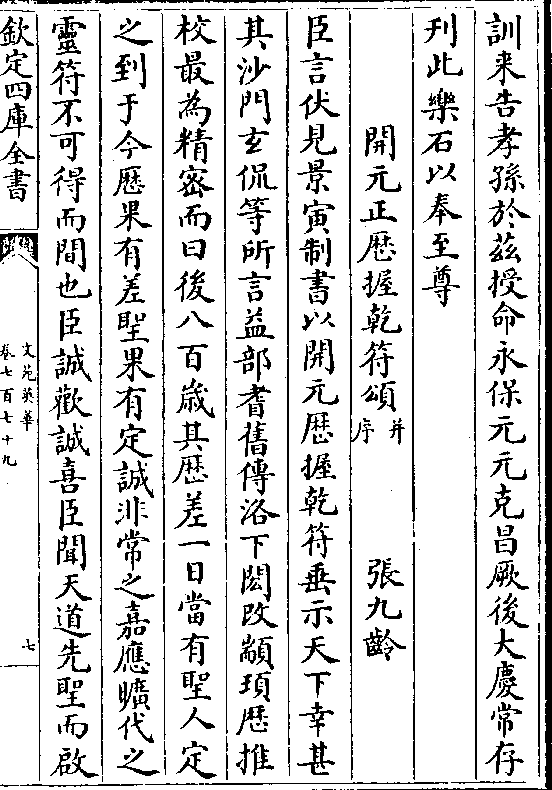 訓来告孝孫於茲授命永保元元克昌厥後大慶常存
刋此樂石以奉至尊
開元正歴握乾符頌并序 張九齡
臣言伏見景寅制書以開元歴握乾符垂示天下幸甚
其沙門玄侃等所言益部耆舊傳洛下閎改顓頊歴推
校最為精宻而曰後八百歳其歴差一日當有聖人定
之到于今歴果有差聖果有定誠非常之嘉應曠代之
靈符不可得而間也臣誠歡誠喜臣聞天道先聖而啟
欽定四庫全書
文苑英華
卷七百七十九
七